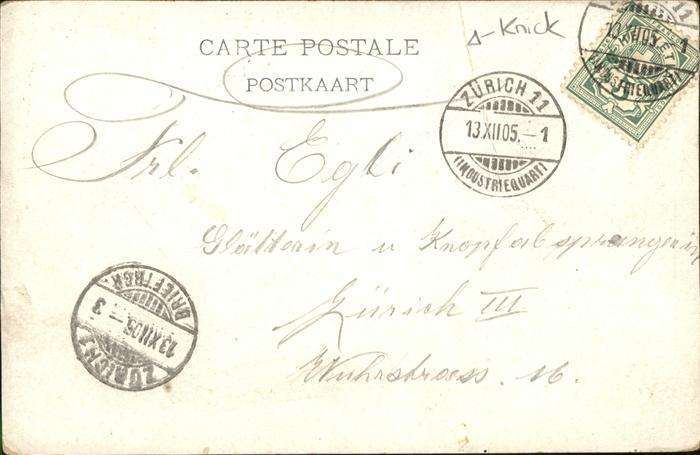 CARTE POSTALE
POSTKAART
Δ-Knick
ZÜRICH 11
13.XII.05.-1
(INDUSTRIEQUART)
11
XII 05.-1
(INDUSTRIEQUART)
Frl. Egli
Glätterin u Knopfabsprangerin
Zürich III
Wuhrstrass. 16.
ZÜRICH 1
13.XII.05.-3
BRIEFTRGR.